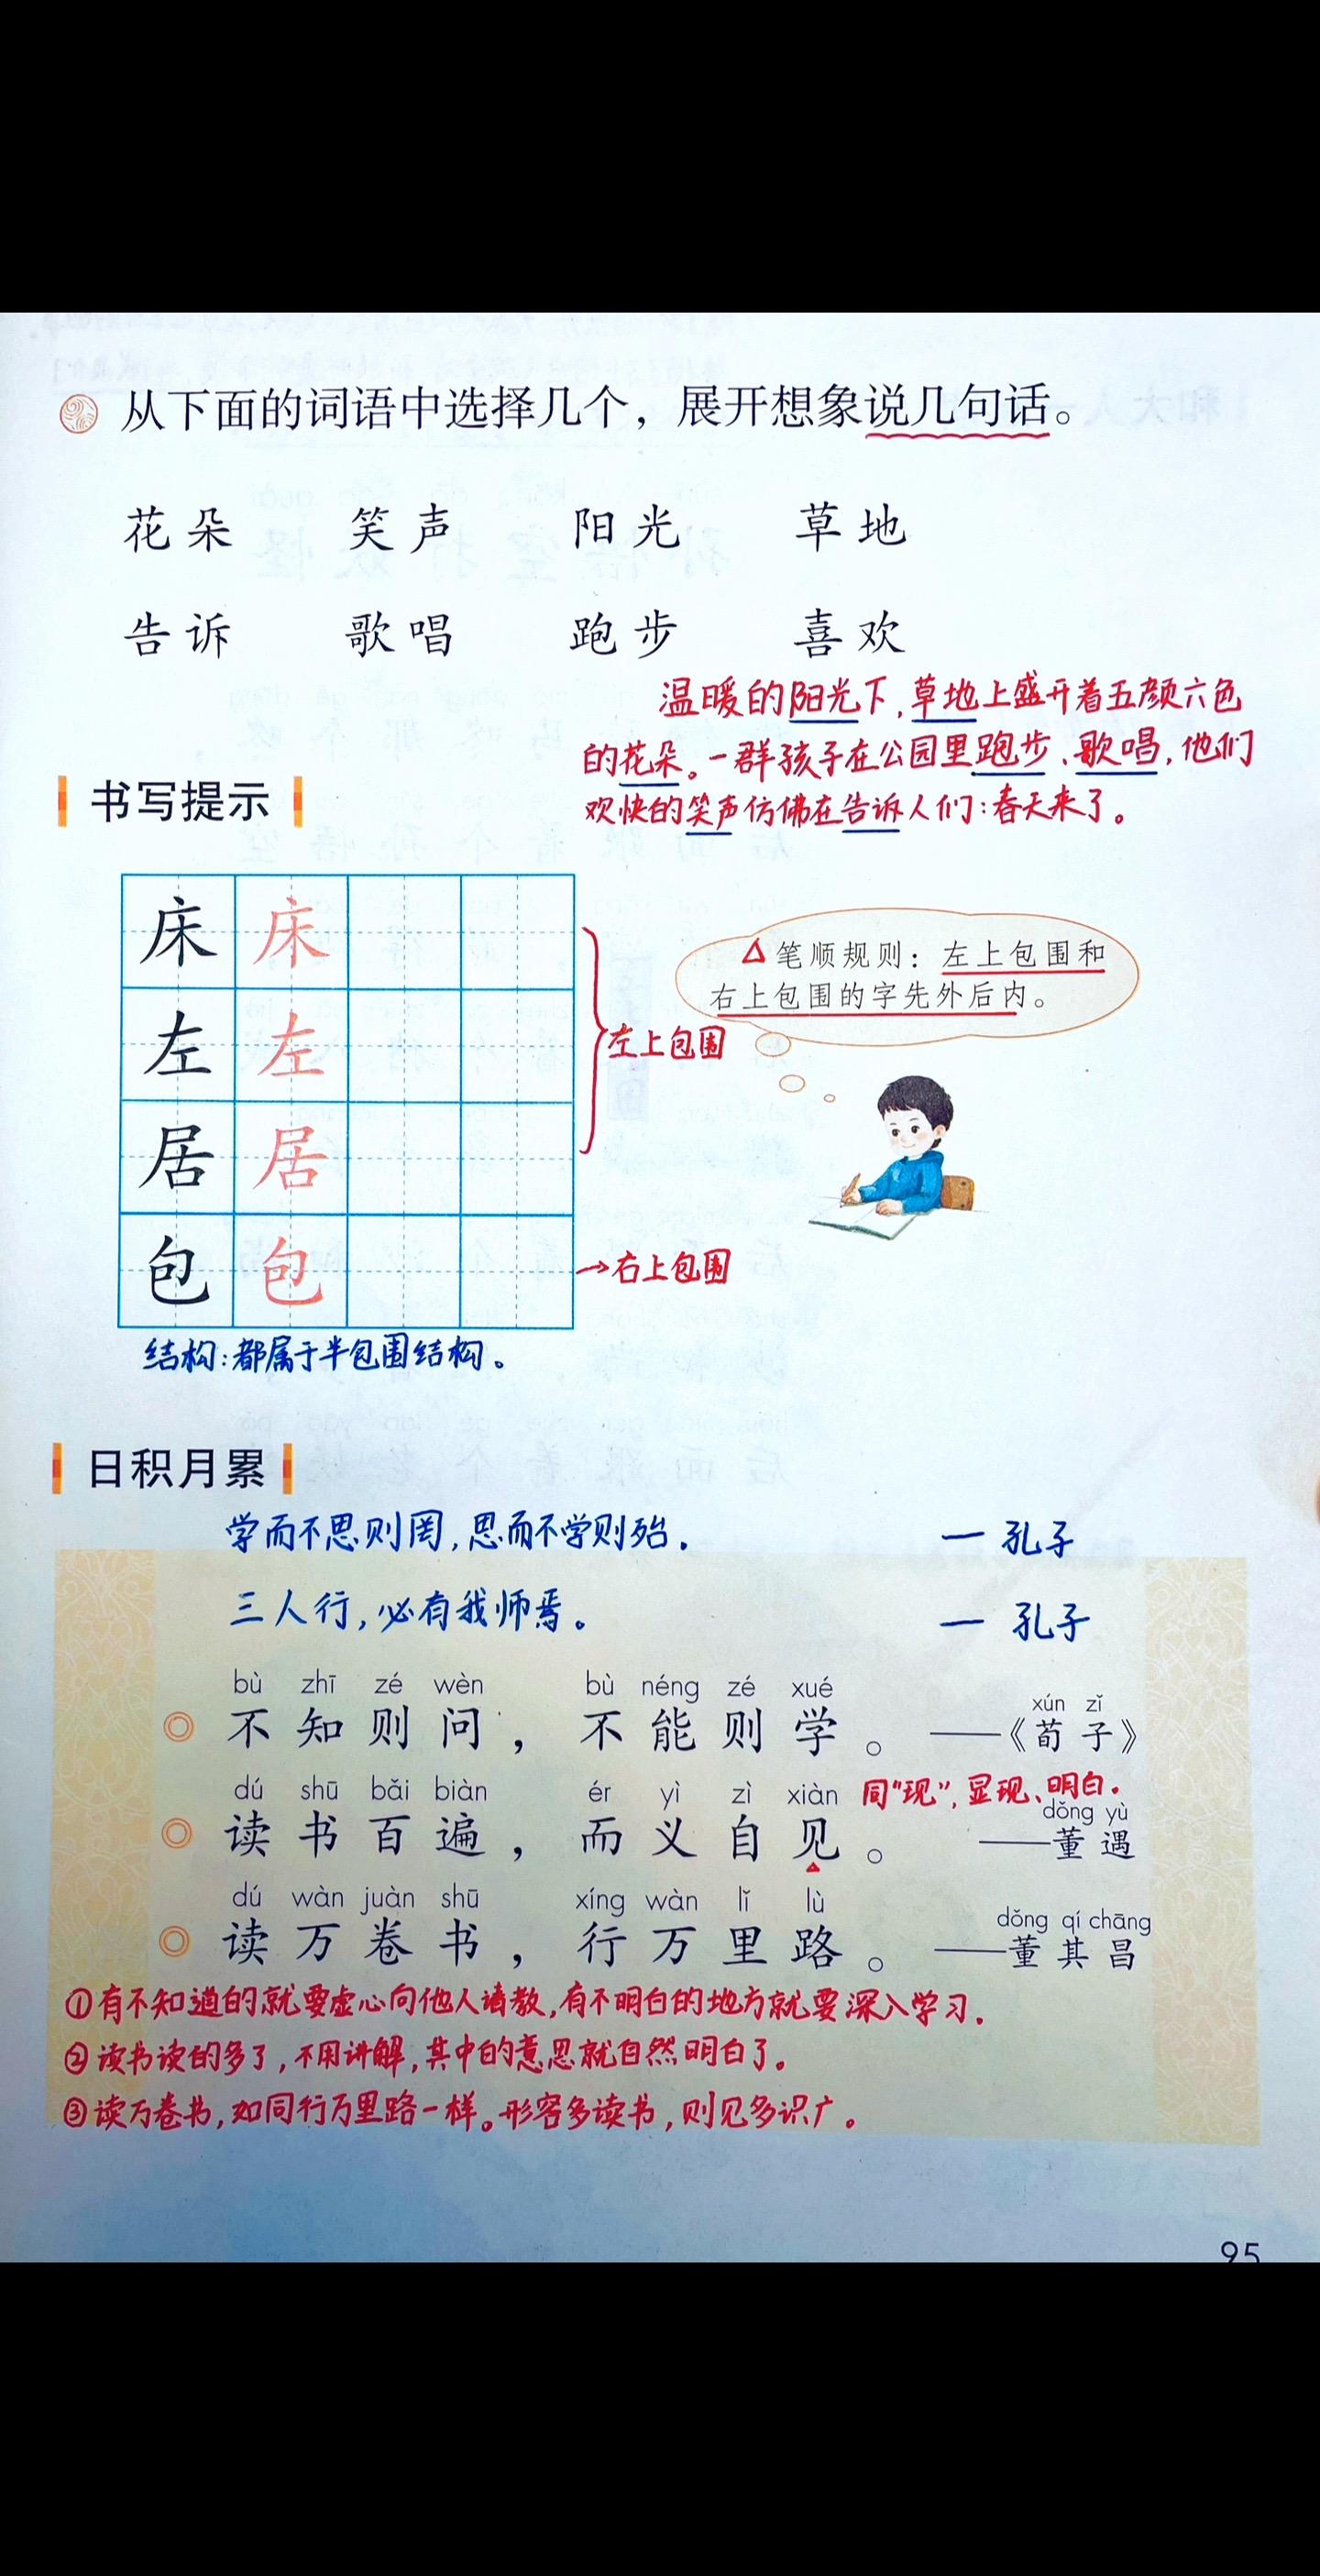 从下面的词语中选择几个，展开想象说几句话。
花朵 笑声 阳光 草地
告诉 歌唱 跑步 喜欢
温暖的阳光下，草地上盛开着五颜六色
的花朵。一群孩子在公园里跑步、歌唱，他们
欢快的笑声仿佛在告诉人们：春天来了。
书写提示
床 床
左 左
居 居
包 包
左上包围
→右上包围
△笔顺规则：左上包围和
右上包围的字先外后内。
结构：都属于半包围结构。
日积月累
学而不思则罔，思而不学则殆． — 孔子
三人行，必有我师焉。 — 孔子
bù zhī zé wèn bù néng zé xué xún zǐ
◎ 不知则问，不能则学。 ——《荀子》
dú shū bǎi biàn ér yì zì xiàn 同“现”，显现、明白。
dǒng yù
◎ 读书百遍，而义自见。 ——董遇
dú wàn juàn shū xíng wàn lǐ lù dǒng qí chāng
◎ 读万卷书，行万里路。 ——董其昌
①有不知道的就要虚心向他人请教，有不明白的地方就要深入学习．
②读书读的多了，不用讲解，其中的意思就自然明白了。
③读万卷书，如同行万里路一样。形容多读书，则见多识广。
95